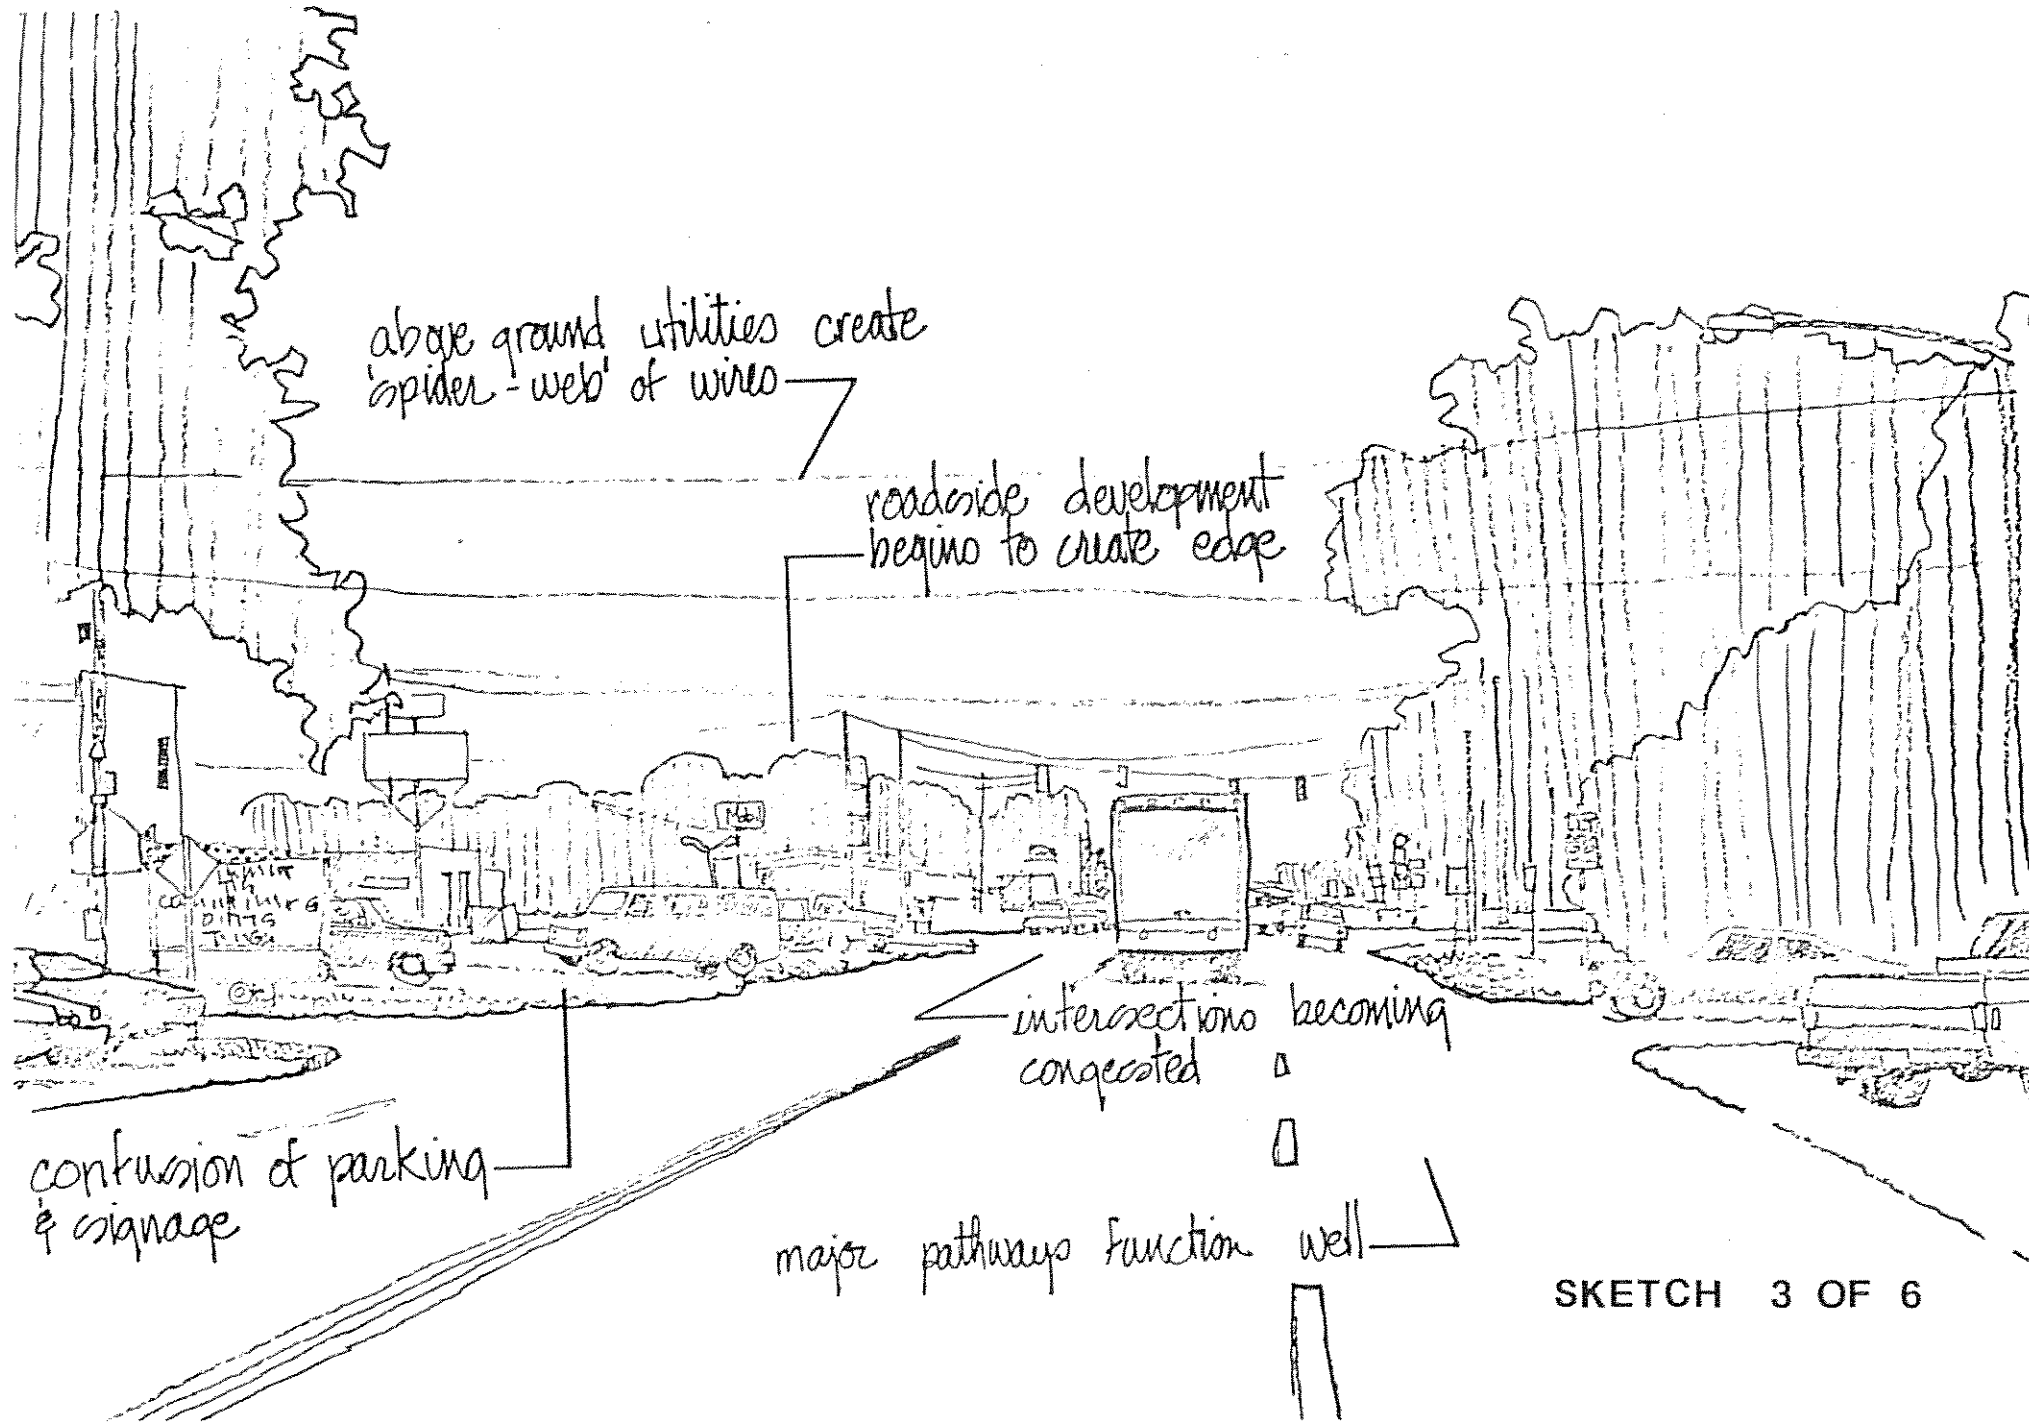 above ground utilities create
'spider-web' of wires
roadside development
begins to create edge
Mobil
intersections becoming
congested
confusion of parking
& signage
major pathways function well
SKETCH 3 OF 6